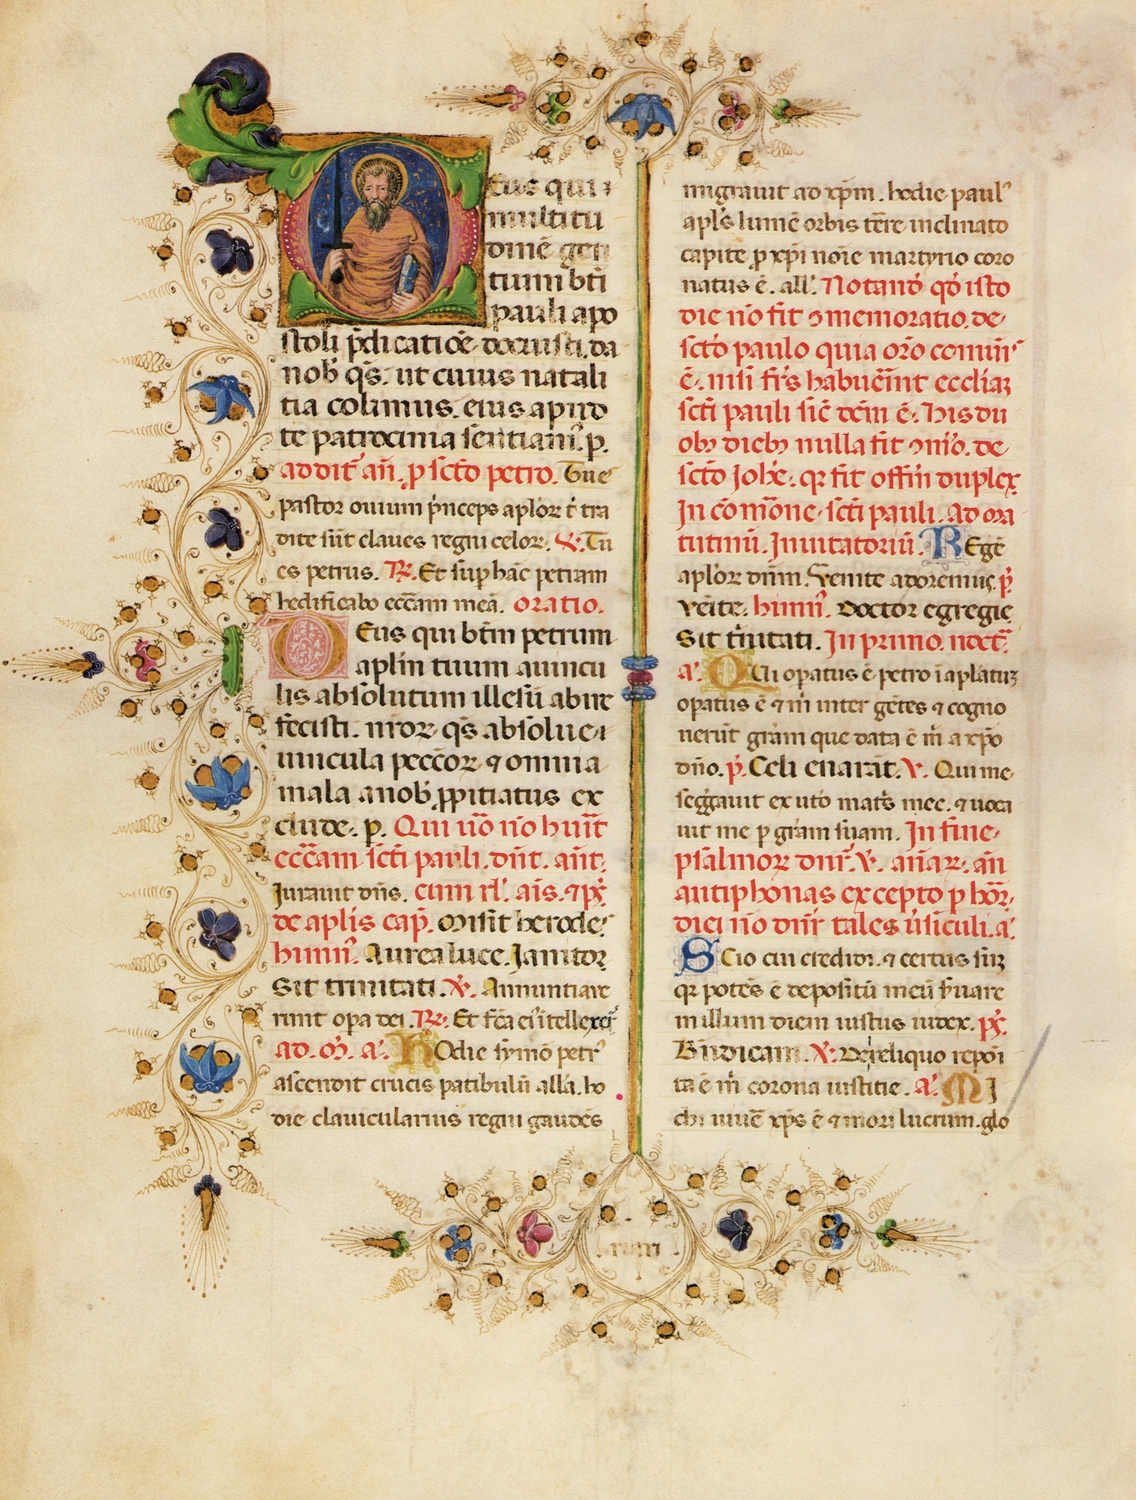 Eus qui
multitu
dinē gen
tium bt̄i
pauli apo
stoli p̄dicatiōe docuisti. da
nob̄ qs̄. ut cuius natali
tia colimus. eius apud
te patrocinia sentiam᷒. p.
addit̄ añ. p sc̄to petro. Tu e᷒
pastor ouium p̄nceps apl'oꝝ t̄ tra
dite sūt claues regni celoꝝ. ℣. Tu
es petrus. ℟. Et sup hāc petram
hedificabo ecc̄am meā. oratio.
Deus qui bt̄m petrum
apl̄m tuum a uincu
lis absolutum illesū abire
fecisti. nr̄oꝝ qs̄ absolue
uincula pecc̄oꝝ ⁊ omnia
mala a nob̄ ꝓpitiatus ex
clude. p. Qui uō nō hn̄t
ecc̄am sc̄ti pauli. dn̄t. añt.
Iurauit dn̄s. cum rl'. ais. ⁊ ps̄.
de apl̄is cap̄. Misit herode᷒
himn᷒. Aurea luce. Ianitor
Sit trinitati. ℣. Annuntiaue
runt opa dei. ℟. Et fc̄a ei᷒ ītellexer̄
ad. m̄. a'. Hodie symō petr᷒
ascendit crucis patibulū all'a. ho
die clauicularius regni gaudēs
migrauit ad xp̄m. hodie paul᷒
apl's lumē orbis t̄re inclinato
capite p xp̄i noīe martyrio coro
natus ē. all'. Notand̄ qd̄ isto
die nō fit ꝯmemoratio. de
sc̄to paulo quia or̄o comūis
ē. nisi fr̄s habuer̄int eccl̄iaꝫ
sc̄ti pauli sic̄ dc̄m ē. His du
obꝫ diebꝫ nulla fit ꝯm̄o. de
sc̄to Ioh̄e. qꝛ fit offm̄ duplex
In cōmōne sc̄ti pauli. Ad ma
tutinū. Inuitatoriū. Regē
apl'oꝝ dn̄m. Venite adoremus. p̄.
Vēite. himn᷒. Doctor egregie
Sit t̄nitati. In primo noct̄.
a'. Qui opatus ē petro ī apl̄atuꝫ
opatus ē ⁊ m̄ inter gētes ⁊ cogno
uerūt grām que data ē m̄ a xp̄o
dn̄o. p̄. Celi enarāt. ℣. Qui me
segg̃auit ex utō mat̄s mee. ⁊ uoca
uit me p grām suam. In fine
psalmoꝝ dnr̄. ℣. añaꝝ. añ
antiphonas excepto p hōr̄.
diei nō dn̄r tales ūsiculi. a'.
Scio cui credidi. ⁊ certus sūꝫ
qꝛ potēs ē depositū meū s̄uare
in illum diem iustus iudex. ps̄.
Bn̄dicam. ℣. De reliquo reposi
ta ē m̄ corona iustitie. a'. MI
chi uiuē xp̄s ē ⁊ mori lucrum. glo